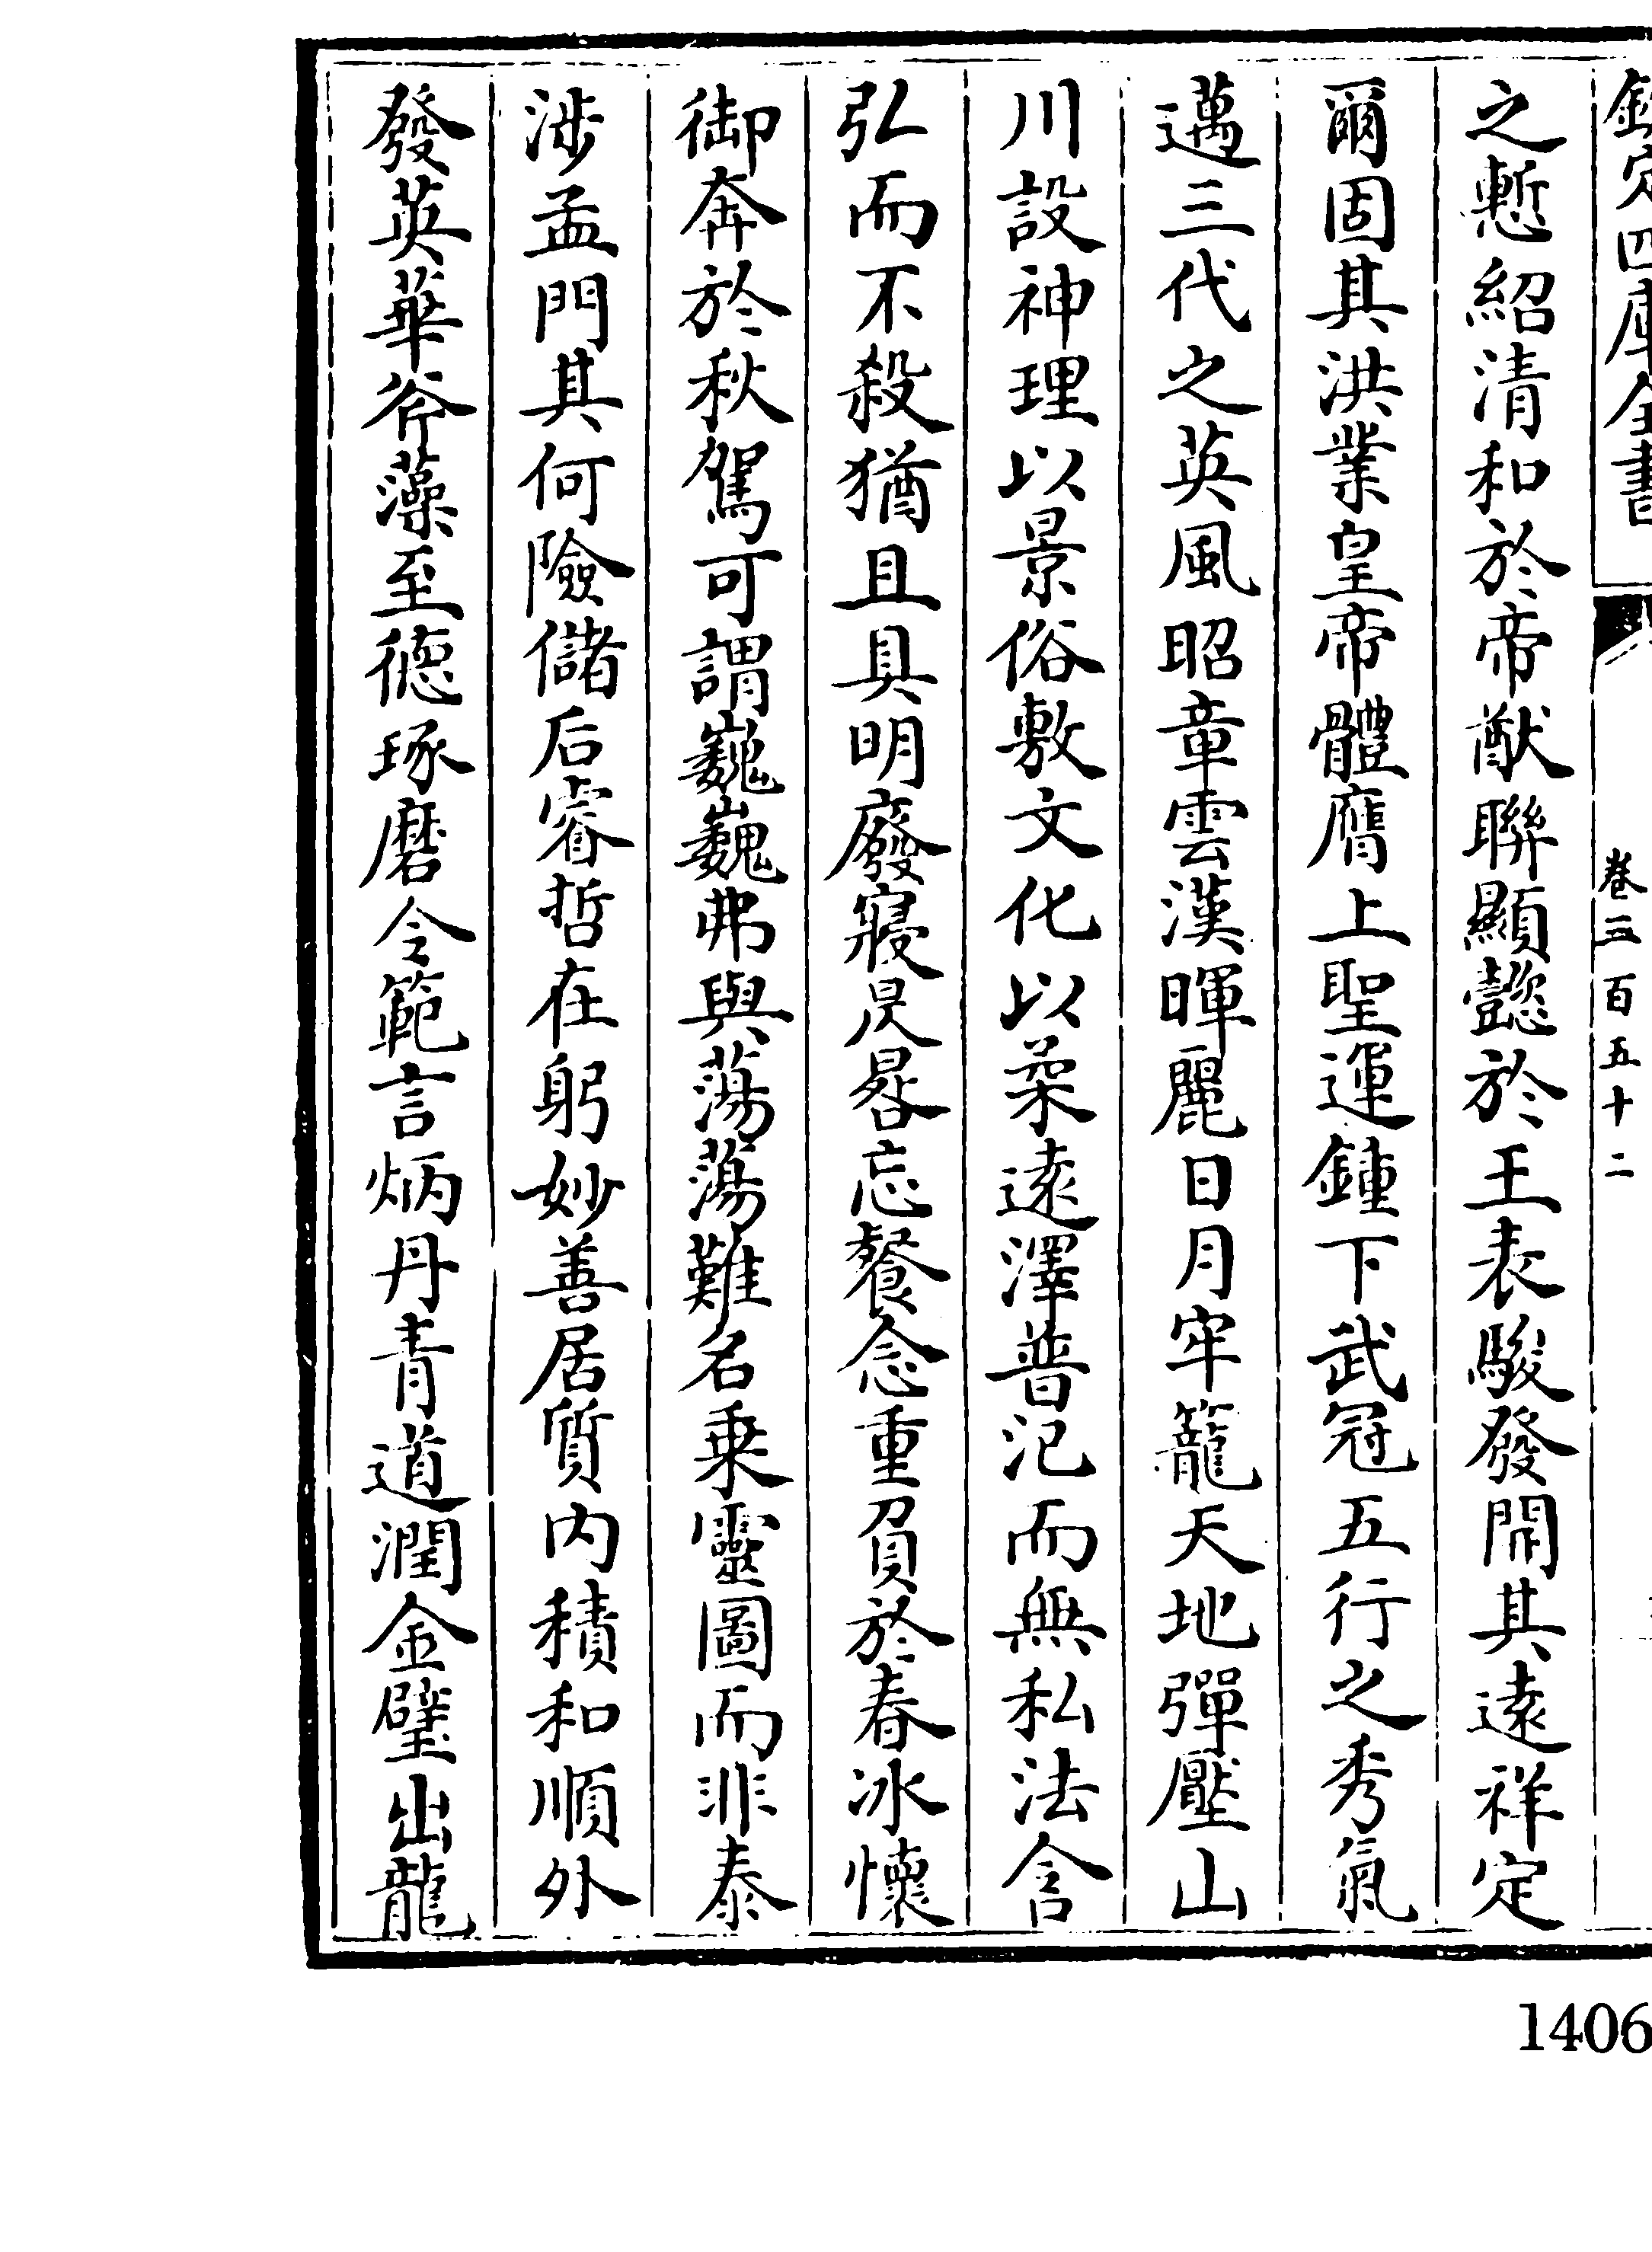 欽定四庫全書
卷三百五十二
之慙紹清和於帝猷聯顯懿於王表駿發開其遠祥定
爾固其洪業皇帝體膺上聖運鍾下武冠五行之秀氣
邁三代之英風昭章雲漢暉麗日月牢籠天地彈壓山
川設神理以景俗敷文化以柔遠澤普汜而無私法含
弘而不殺猶且具明廢寢昃晷忘餐念重負於春冰懷
御奔於秋駕可謂巍巍弗與蕩蕩難名乗靈圖而非泰
涉孟門其何險儲后睿哲在躬妙善居質内積和順外
發英華斧藻至徳琢磨令範言炳丹青道潤金璧出龍
1406